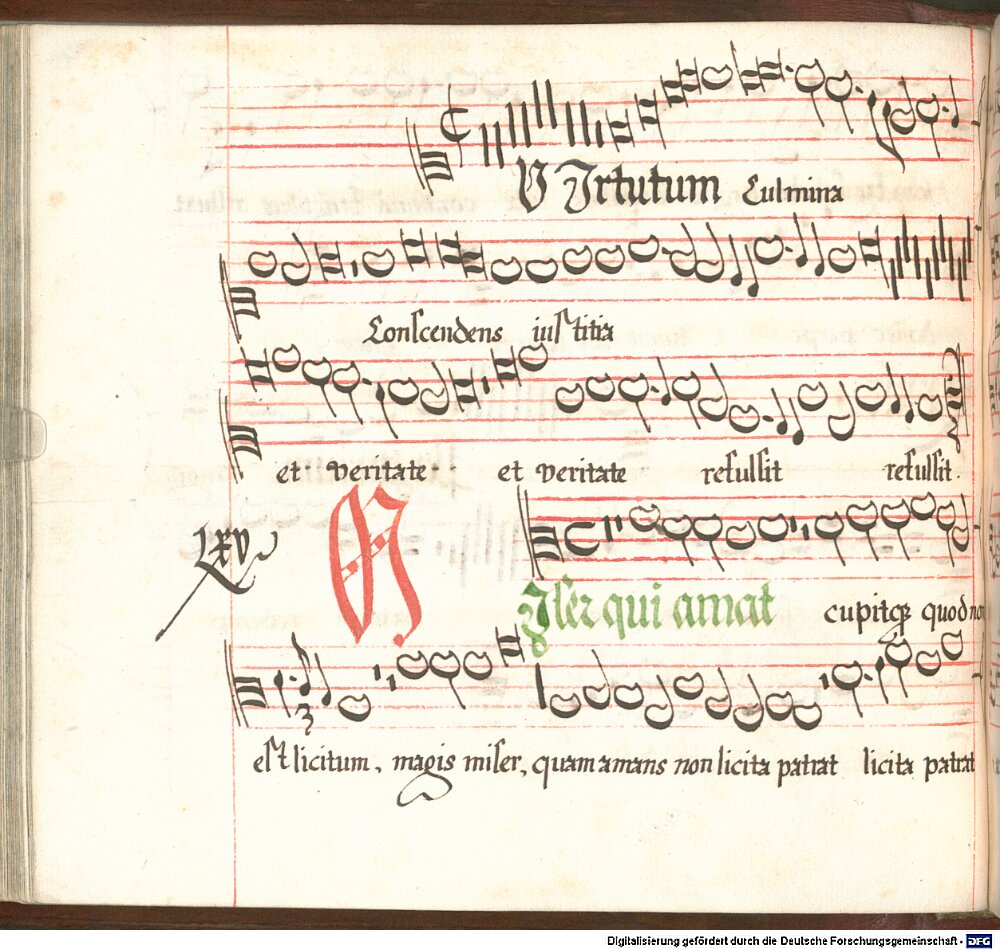 Virtutum Culmina
Conscendens iustitia
et veritate et veritate refulsit refulsit.
LXV
Miser qui amat cupitqz quod non
est licitum, magis miser, quam amans non licita patrat licita patrat
Digitalisierung gefördert durch die Deutsche Forschungsgemeinschaft - DFG